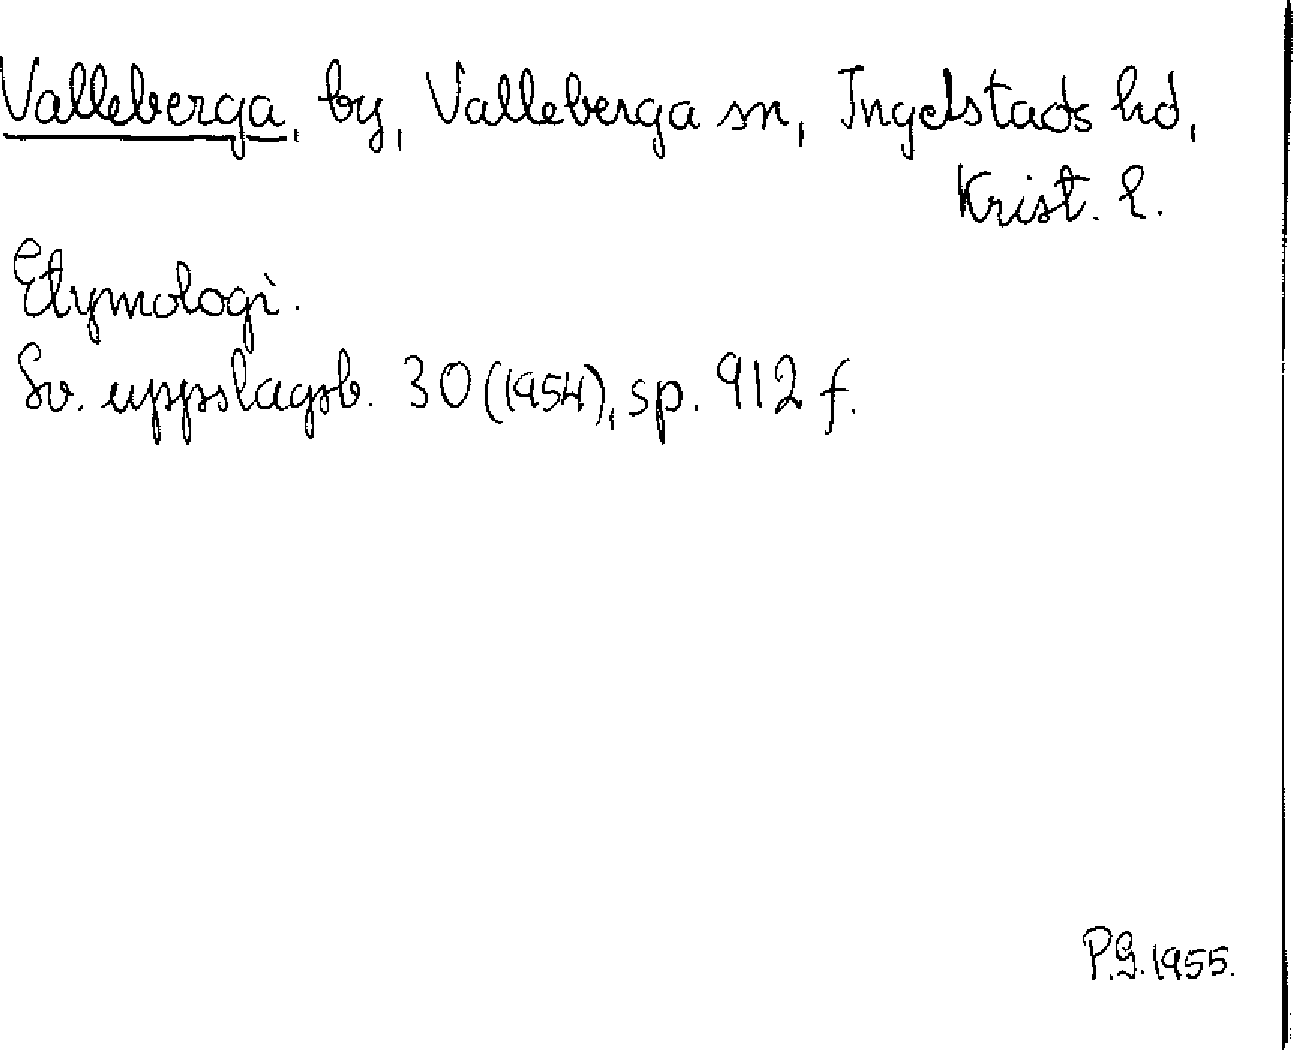 Valleberga, by, Valleberga sn, Ingelstads hd,
Krist. l.
Etymologi.
Sv. uppslagsb. 30 (1954), sp. 912 f.
P.G. 1955.